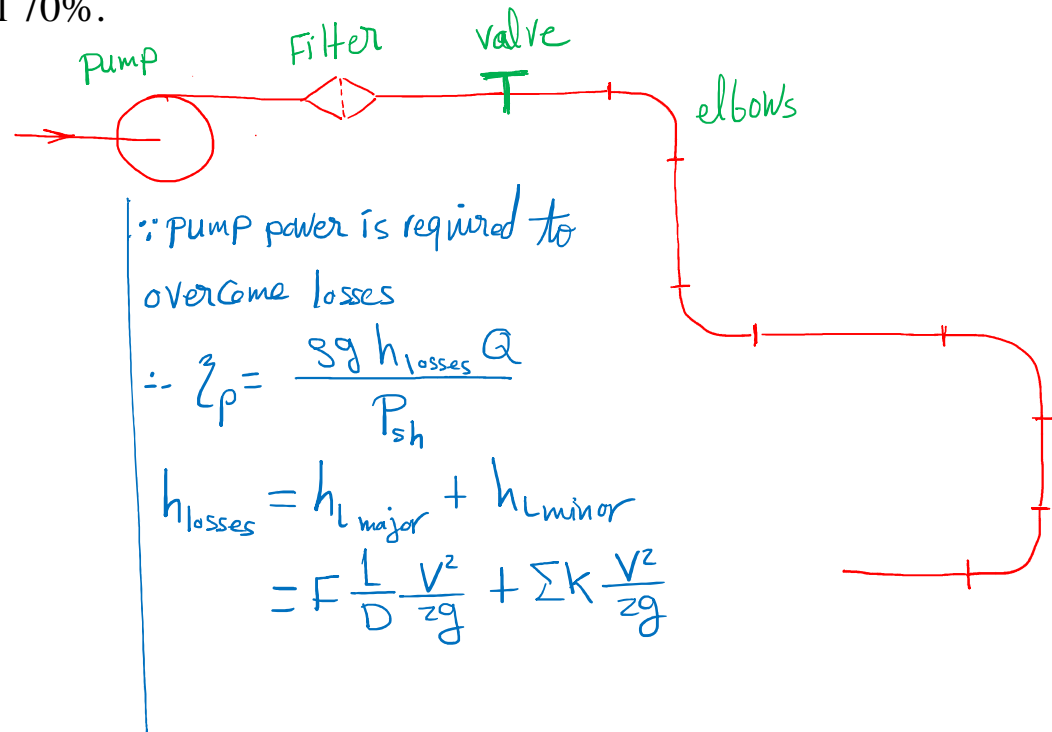 l 70%.
Pump
Filter
valve
elbows
∵ pump power is required to
overcome losses
∴ η_p = ρg h_losses Q / P_sh
h_losses = h_L major + h_L minor
= F L/D V²/2g + ΣK V²/2g